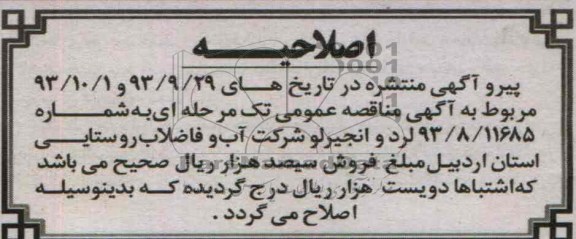 اصلاحیه
پیرو آگهی منتشره در تاریخ های ۹۳/۹/۲۹ و ۹۳/۱۰/۱
مربوط به آگهی مناقصه عمومی تک مرحله ای به شماره
۹۳/۸/۱۱۶۸۵ لرد و انجیرلو شرکت آب و فاضلاب روستایی
استان اردبیل مبلغ فروش سیصد هزار ریال صحیح می باشد
که اشتباها دویست هزار ریال درج گردیده که بدینوسیله
اصلاح می گردد .